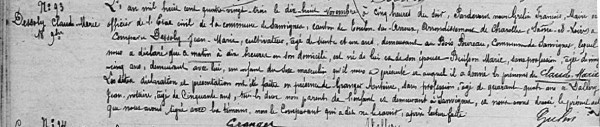 N° 93
Dessoly Claude-Marie
N gte
L'an mil huit cent quatre-vingt-trois le dix huit Novembre à cinq heures du soir, Pardevant nous Grelin François, Maire et
officier de l'état civil de la commune de Sannigues, canton de Toulon-sur-Arroux, Arrondissement de Charolles (Saône et Loire) a
comparu Dessoly Jean-Marie, cultivateur, âgé de trente et un ans, demeurant au Bois Bureau, Commune de Sannigues, lequel
nous a déclaré que ce matin à dix heures en son domicile, est né de lui et de son épouse Buisson Marie, sans profession, âgée de
cinq ans, demeurant avec lui, un enfant du sexe masculin qu'il nous a présenté et auquel il a donné les prénoms de Claude Marie
Les dites déclaration et présentation ont été faites en présence de Granger Antoine, sans profession, âgé de quarante huit ans et
Jean, notaire, âgé de cinquante ans, tous les deux non parents de l'enfant et demeurant à Sannigues, et nous avons dressé le présent
que nous avons signé avec les témoins, non le Comparant qui a dit ne le savoir, après lecture faite
Granger
N° 94